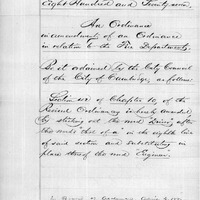 Eight Hundred and Twenty seven.
An Ordinance
in amendment of an Ordinance
in relation to the Fire Department.
Be it ordained by the City Council
of the City of Cambridge, as follows:
Section of Chapter 10 of the
Revised Ordinances is hereby amended
by striking out the word
the words "that of a" in the eighth line
of said section and substituting in
place thereof the word Engineer.